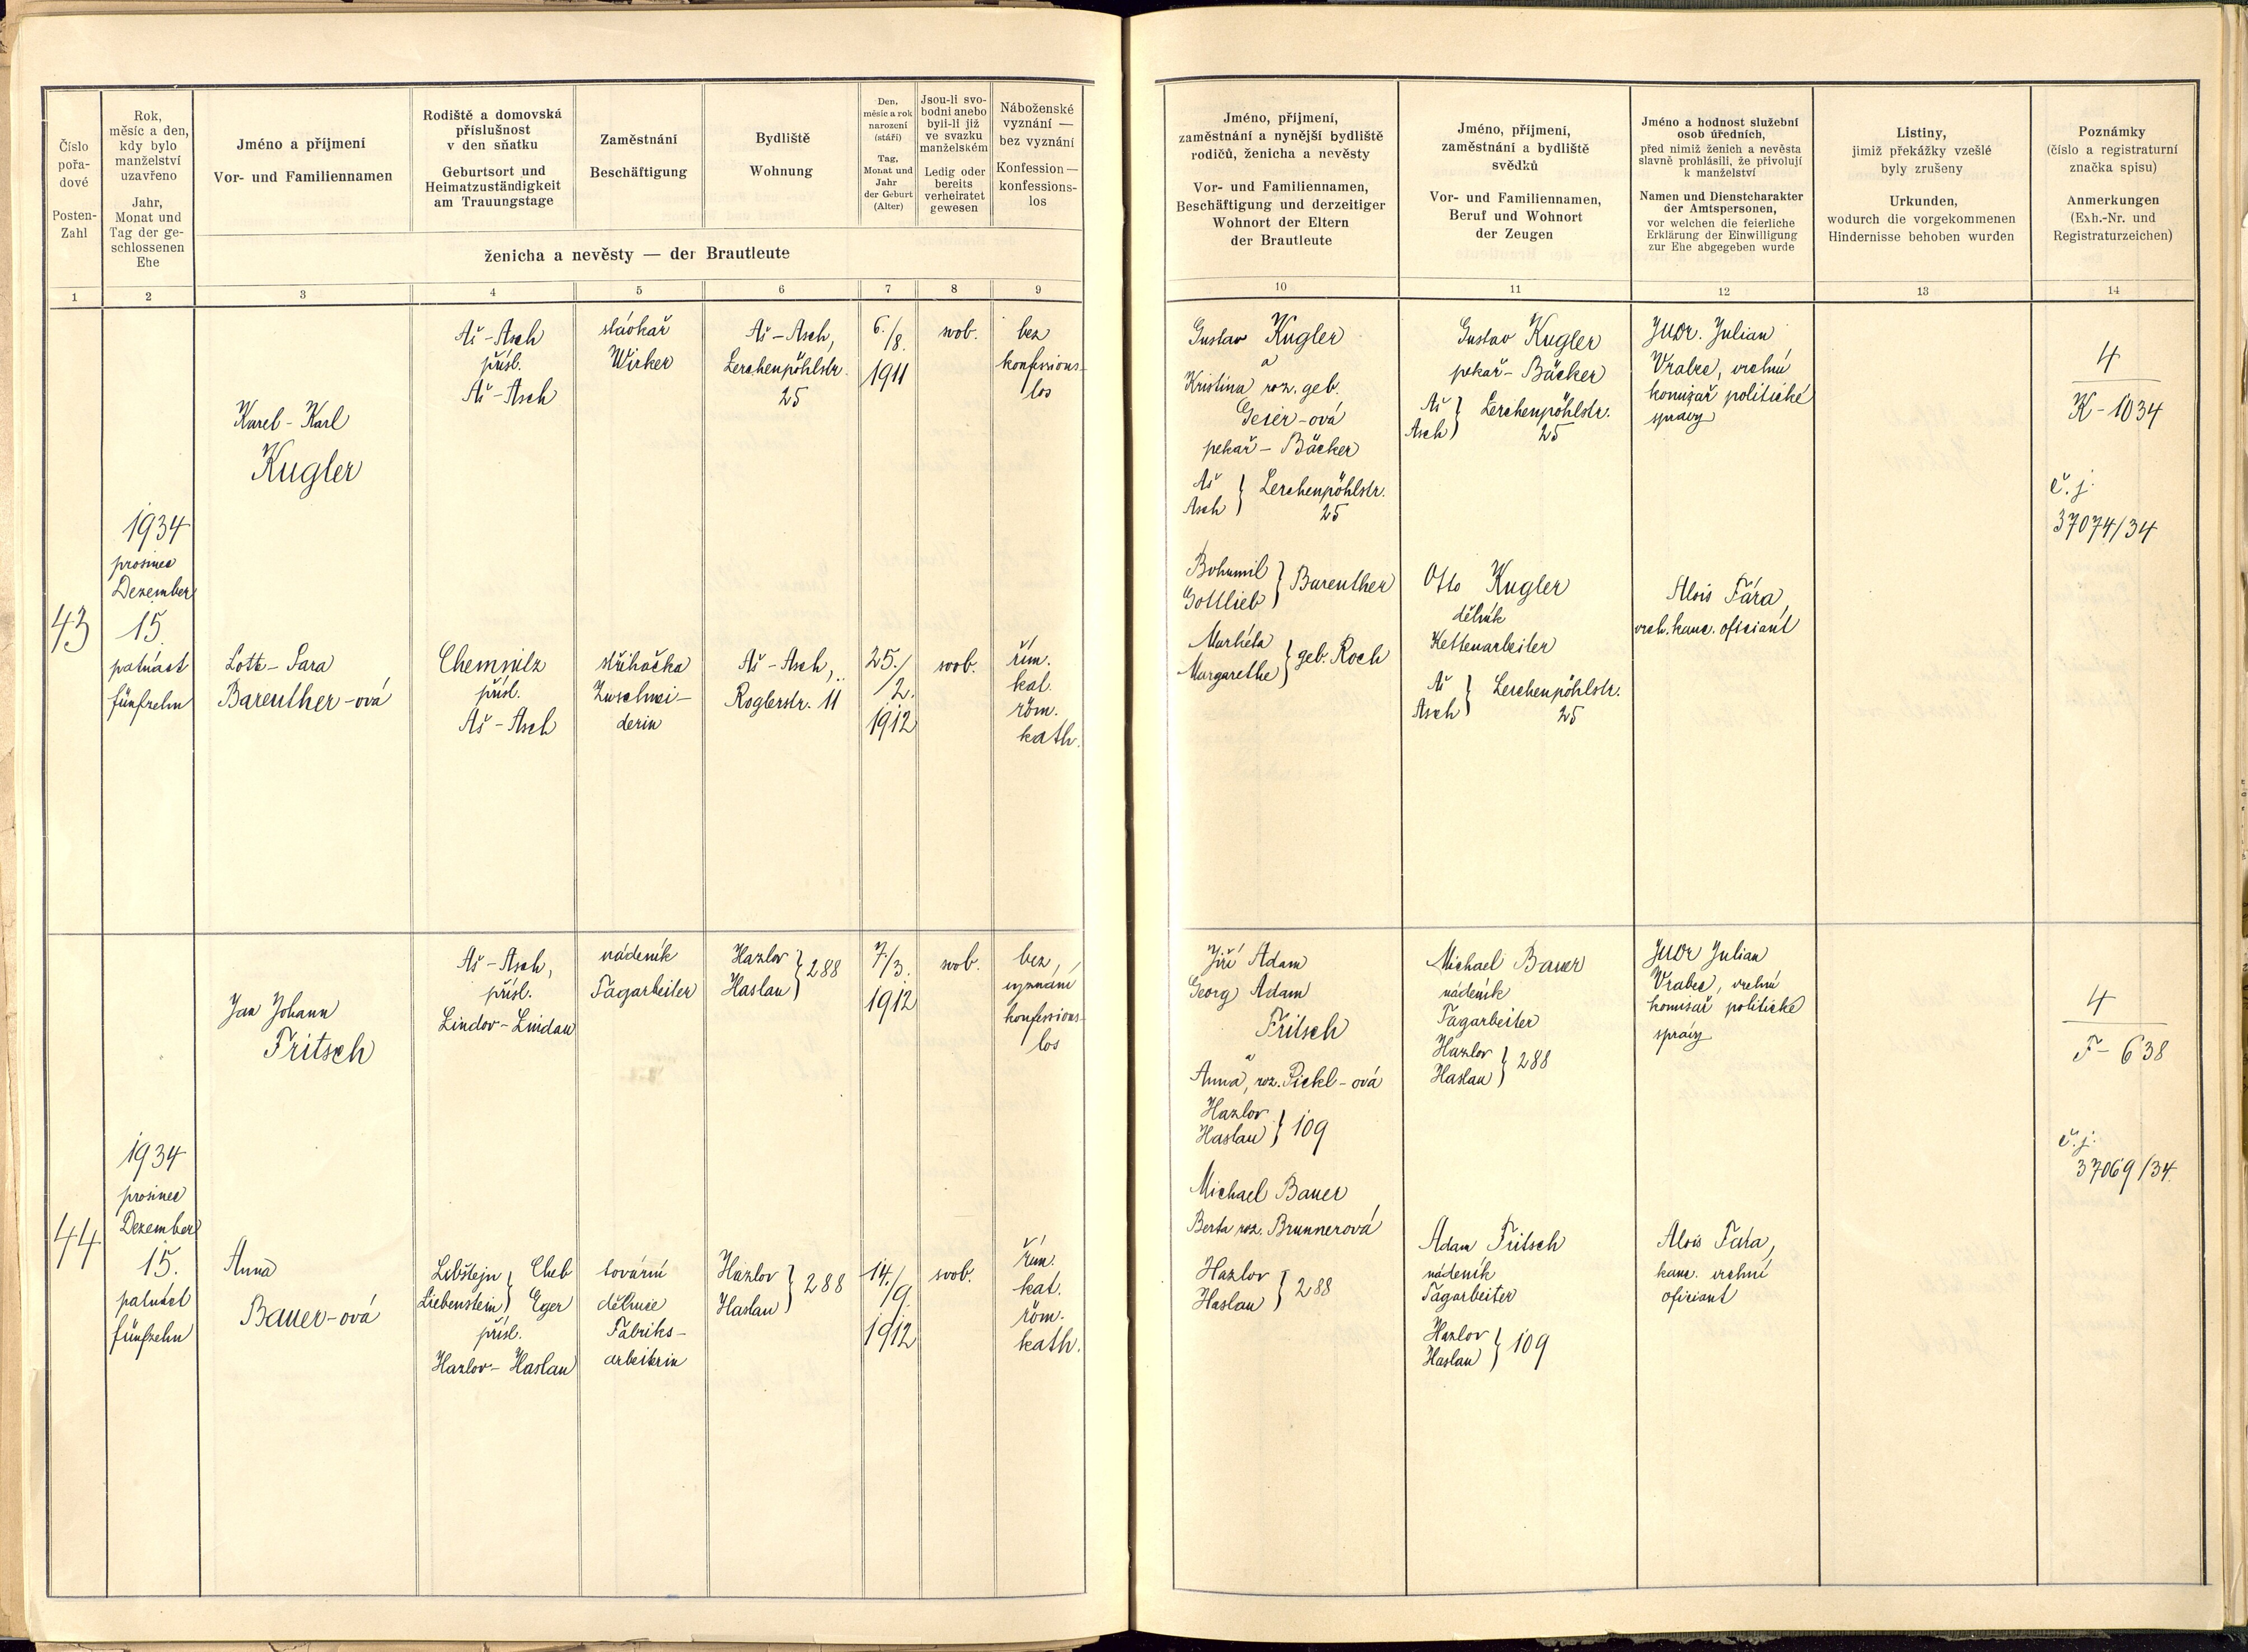 Číslo
pořa-
dové
Posten-
Zahl
Rok,
měsíc a den,
kdy bylo
manželství
uzavřeno
Jahr,
Monat und
Tag der ge-
schlossenen
Ehe
Jméno a příjmení
Vor- und Familiennamen
Rodiště a domovská
příslušnost
v den sňatku
Geburtsort und
Heimatzuständigkeit
am Trauungstage
Zaměstnání
Beschäftigung
Bydliště
Wohnung
Den,
měsíc a rok
narození
(stáří)
Tag,
Monat und
Jahr
der Geburt
(Alter)
Jsou-li svo-
bodni anebo
byli-li již
ve svazku
manželském
Ledig oder
bereits
verheiratet
gewesen
Náboženské
vyznání —
bez vyznání
Konfession —
konfessions-
los
ženicha a nevěsty — der Brautleute
1 2 3 4 5 6 7 8 9
43
1934
prosinec
Dezember
15.
patnáct
fünfzehn
Karel - Karl
Kugler
Aš - Asch
přísl.
Aš - Asch
stávkař
Wirker
Aš - Asch,
Lerchenpöhlstr.
25
6./8.
1911
svob.
bez
konfessions-
los
Lotte - Sara
Barenther-ová
Chemnitz
přísl.
Aš - Asch
střihačka
Zuschnei-
derin
Aš - Asch,
Roglerstr. 11
25./
2.
1912
svob.
řím.
kat.
röm.
kath.
44
1934
prosinec
Dezember
15.
patnáct
fünfzehn
Jan Johann
Fritsch
Aš - Asch,
přísl.
Lindov - Lindau
nádeník
Tagarbeiter
Hazlov
Haslau } 288
7./3.
1912
svob.
bez
vyznání
konfessions-
los
Anna
Bauer-ová
Libštejn } Cheb
Liebenstein } Eger
přísl.
Hazlov - Haslau
tovární
dělnice
Fabriks-
arbeiterin
Hazlov
Haslau } 288
14./
9.
1912
svob.
řím.
kat.
röm.
kath.
Jméno, příjmení,
zaměstnání a nynější bydliště
rodičů, ženicha a nevěsty
Vor- und Familiennamen,
Beschäftigung und derzeitiger
Wohnort der Eltern
der Brautleute
Jméno, příjmení,
zaměstnání a bydliště
svědků
Vor- und Familiennamen,
Beruf und Wohnort
der Zeugen
Jméno a hodnost služební
osob úředních,
před nimiž ženich a nevěsta
slavně prohlásili, že přivolují
k manželství
Namen und Dienstcharakter
der Amtspersonen,
vor welchen die feierliche
Erklärung der Einwilligung
zur Ehe abgegeben wurde
Listiny,
jimiž překážky vzešlé
byly zrušeny
Urkunden,
wodurch die vorgekommenen
Hindernisse behoben wurden
Poznámky
(číslo a registraturní
značka spisu)
Anmerkungen
(Exh.-Nr. und
Registraturzeichen)
10 11 12 13 14
Gustav Kugler
a
Kristina roz. geb.
Geier-ová
pekař - Bäcker
Aš
Asch } Lerchenpöhlstr.
25
Bohumil
Gottlieb } Barenther
Markéta
Margarethe } geb. Roch
Gustav Kugler
pekař - Bäcker
Aš
Asch } Lerchenpöhlstr.
25
Otto Kugler
dělník
Kettenarbeiter
Aš
Asch } Lerchenpöhlstr.
25
JUDr. Julian
Vrabec, vrchní
komisař politické
správy
Alois Fára,
vrch. kanc. oficiant
4
K - 1034
č. j.
37074/34
Jiří Adam
Georg Adam
Fritsch
a
Anna, roz. Pickl-ová
Hazlov
Haslau } 109
Michael Bauer
Berta roz. Brunnerová
Hazlov
Haslau } 288
Michael Bauer
nádeník
Tagarbeiter
Hazlov
Haslau } 288
Adam Fritsch
nádeník
Tagarbeiter
Hazlov
Haslau } 109
JUDr Julian
Vrabec, vrchní
komisař politické
správy
Alois Fára,
kanc. vrchní
oficiant
4
F - 638
č. j.
37069/34